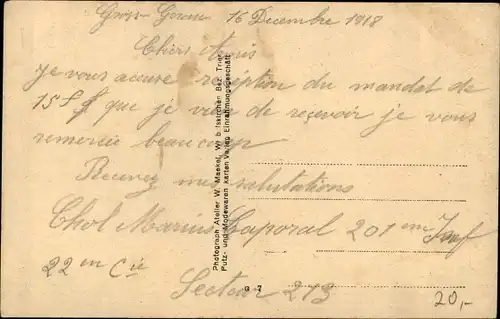 Gross-Gerau 16 Decembre 1918
Chers Amis
Je vous accuse reception du mandat de
15 f que je vien de recevoir je vous
remercie beaucoup
Recevez mes salutations
Chol Marius Caporal 201 eme Inf
22 em Cie
Secteur 213
20,-
Photograph Atelier W. Maekel, W b lskirchen Bez. Trier
Putz- und Modewaren karten Verlag Einrahmungsgeschäft
G 7